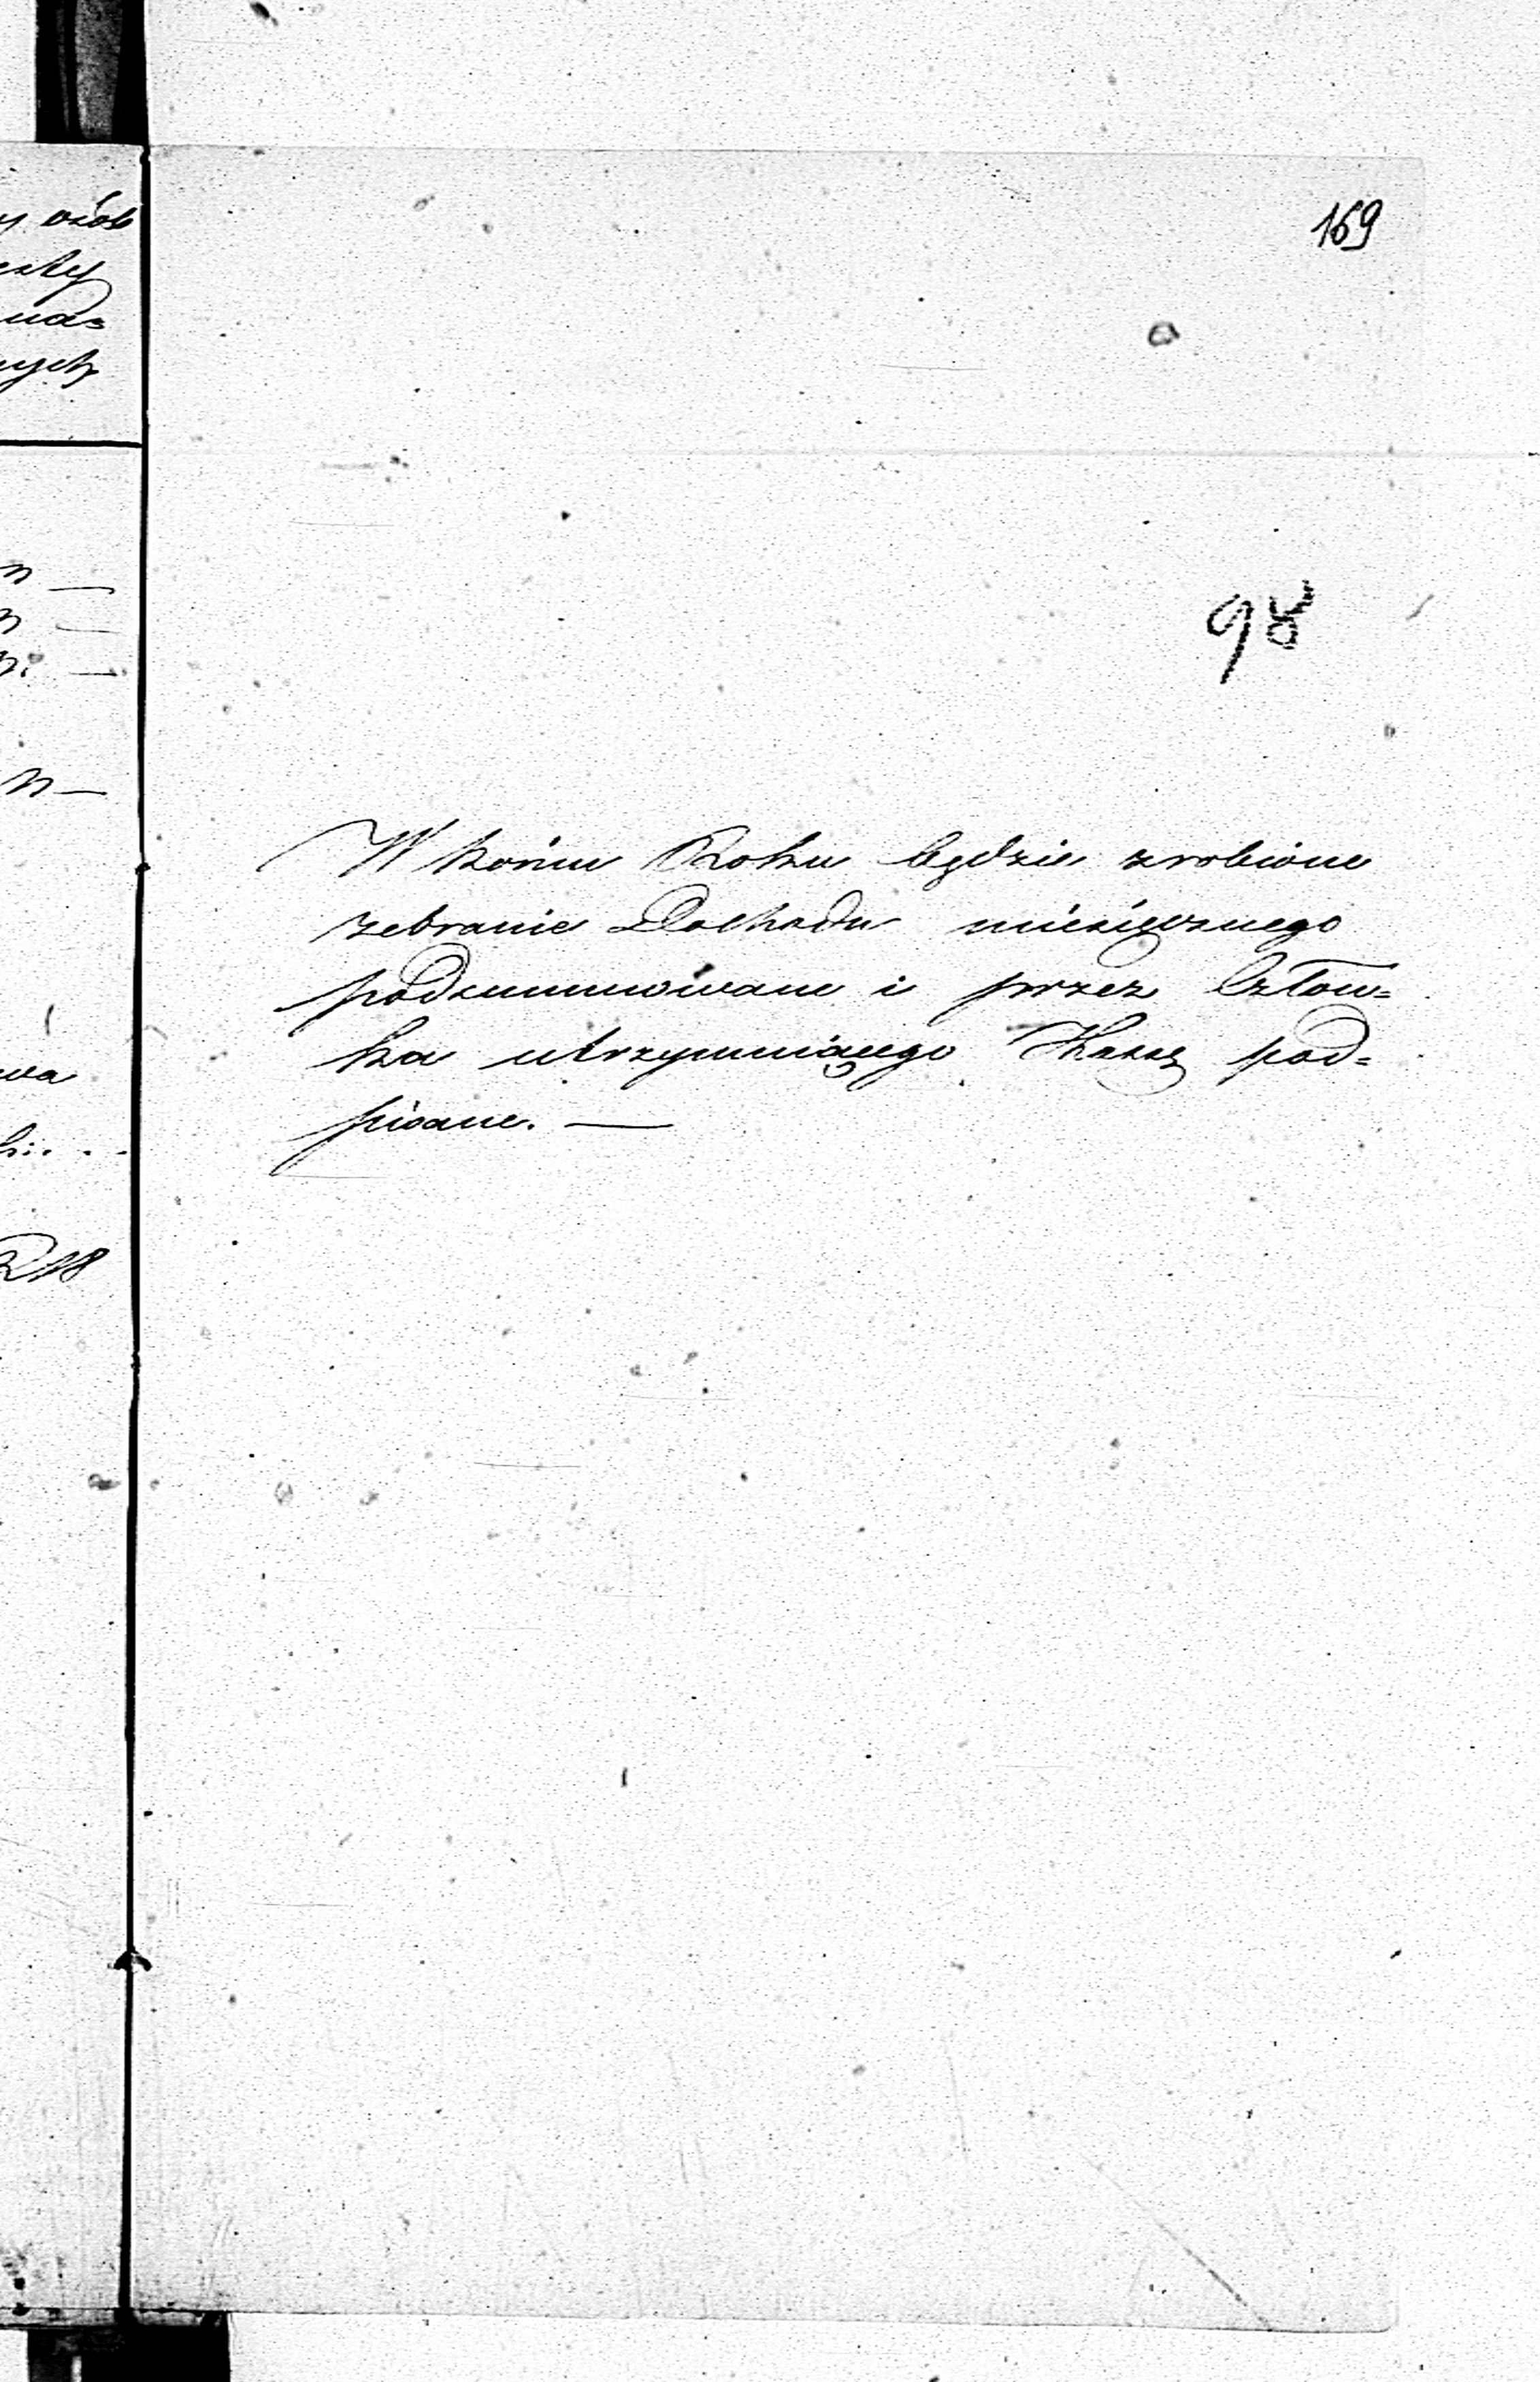 y osób
na=
nych
169
98
W końcu Roku będzie zrobione
zebranie Dochodu miesięcznego
podsummowane i przez Człow=
ka utrzymuiącego Kassę pod=
pisane. —
218